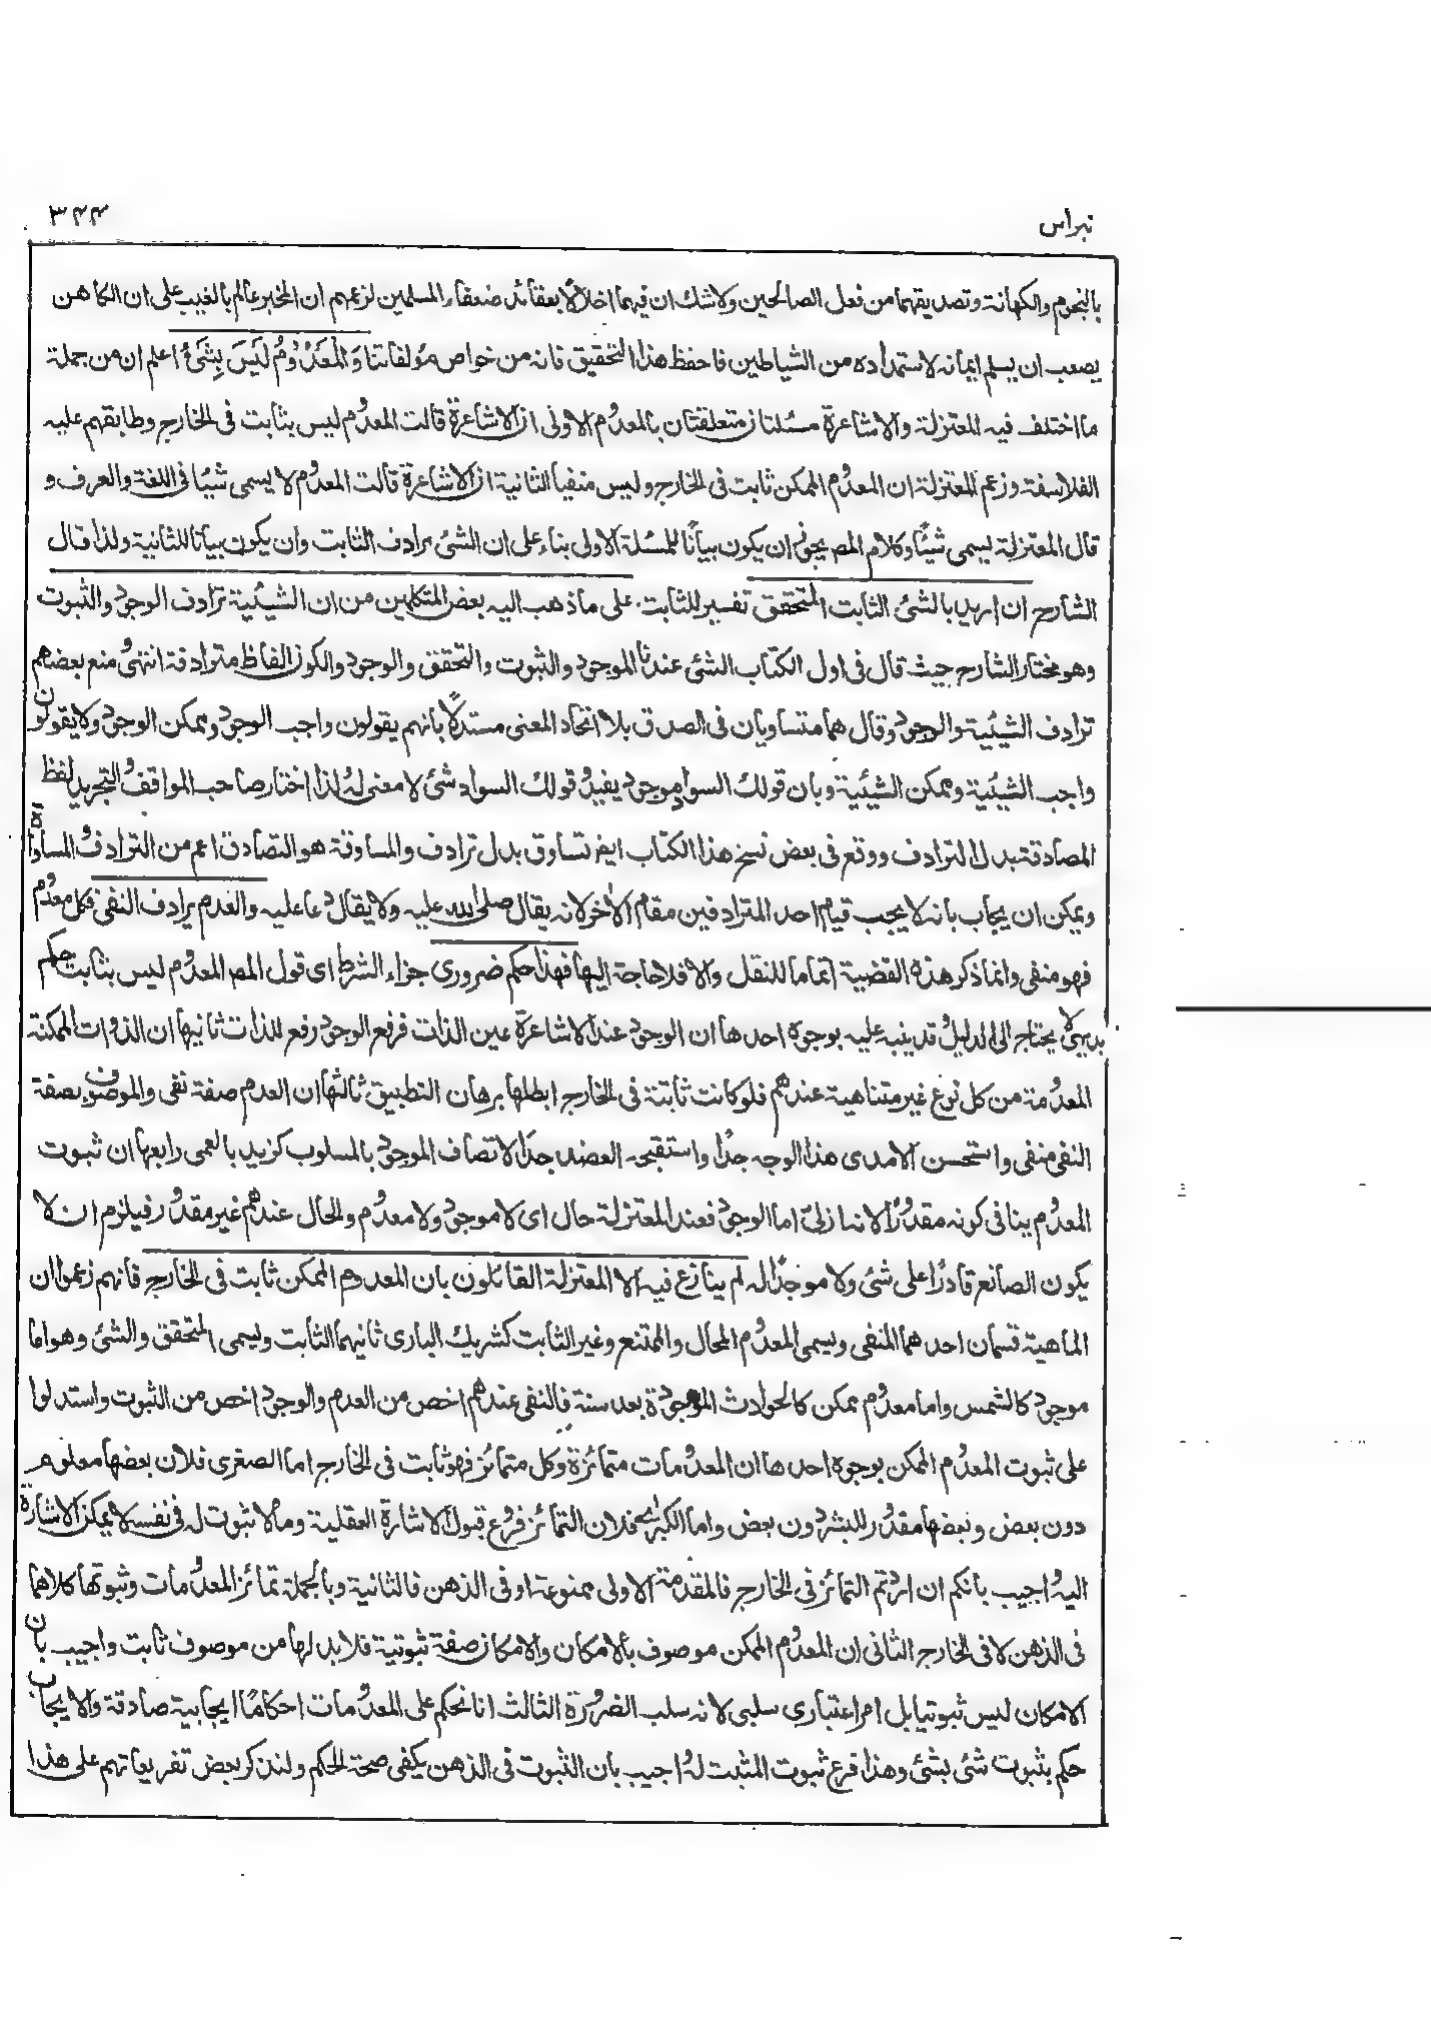 نبراس
٣٤٤
بالنجوم والكهانة وتصديقهما من فعل الصالحين ولا شك ان فيهما اخلالا بعقائد ضعفاء المسلمين لزعمهم ان المخبر عالم بالغيب على ان الكاهن
يصعب ان يسلم ايمانه لاستمداده من الشياطين فاحفظ هذا التحقيق فانه من خواص مؤلفاتنا وَالْمَعْدُوْمُ لَيْسَ بِشَيْءٍ اعلم ان من جملة
ما اختلف فيه المعتزلة والاشاعرة مسئلتان متعلقتان بالمعدوم الاولى ان الاشاعرة قالت المعدوم ليس بثابت فى الخارج وطابقهم عليه
الفلاسفة وزعم المعتزلة ان المعدوم الممكن ثابت فى الخارج وليس منفيا الثانية ان الاشاعرة قالت المعدوم لا يسمى شيئا فى اللغة والعرف و
قال المعتزلة يسمى شيئًا وكلام المص يجوز ان يكون بيانًا للمسئلة الاولى بناء على ان الشئ يرادف الثابت وان يكون بيانا للثانية ولذا قال
الشارح ان اريد بالشئ الثابت المتحقق تفسير للثابت على ما ذهب اليه بعض المتكلمين من ان الشيئية ترادف الوجود والثبوت
وهو مختار الشارح حيث قال فى اول الكتاب الشئ عندنا الموجود والثبوت والتحقق والوجود والكون الفاظ مترادفة انتهى ومنع بعضهم
ترادف الشيئية والوجود وقال هما متساويان فى الصدق بلا اتحاد المعنى مستدلًا بانهم يقولون واجب الوجود وممكن الوجود ولا يقولون
واجب الشيئية وممكن الشيئية وبان قولك السواد موجود يفيد وقولك السواد شئ لا معنى له ولذا اختار صاحب المواقف والتجريد لفظ
المصادقة بدل الترادف ووقع فى بعض نسخ هذا الكتاب ايضا تساوق بدل ترادف والمساوقة هو التصادق اعم من الترادف والمساواة
ويمكن ان يجاب بانه لا يجب قيام احد المترادفين مقام الآخر لانه يقال صلى الله عليه ولا يقال دعا عليه والعدم يرادف النفى فكل معدوم
فهو منفى وانما ذكر هذه القضية اتماما للنقل والا فلا حاجة اليها فهذا حكم ضرورى جزاء الشرط اى قول المص المعدوم ليس بثابت حكم
بديهى لا يحتاج الى الدليل وقد ينبه عليه بوجوه احدها ان الوجود عند الاشاعرة عين الذات فرفع الوجود رفع للذات ثانيها ان الذوات الممكنة
المعدومة من كل نوع غير متناهية عندهم فلو كانت ثابتة فى الخارج ابطلها برهان التطبيق ثالثها ان العدم صفة نفى والموصوف بصفة
النفى منفى واستحسن الآمدى هذا الوجه جدًا واستقبحه العضد جدًا لاتصاف الموجود بالمسلوب كزيد بالعمى رابعها ان ثبوت
المعدوم ينافى كونه مقدورًا لانه ازلى اما الوجود فعند المعتزلة حال اى لا موجود ولا معدوم والحال عندهم غير مقدور فيلزم ان لا
يكون الصانع قادرًا على شئ ولا موجدًا له لم ينازع فيه الا المعتزلة القائلون بان المعدوم الممكن ثابت فى الخارج فانهم زعموا ان
الماهية قسمان احدهما المنفى ويسمى المعدوم المحال والممتنع وغير الثابت كشريك البارى ثانيهما الثابت ويسمى المتحقق والشئ وهو اما
موجود كالشمس واما معدوم ممكن كالحوادث الموجودة بعد سنة فالنفى عندهم اخص من العدم والوجود اخص من الثبوت واستدلوا
على ثبوت المعدوم الممكن بوجوه احدها ان المعدومات متمائزة وكل متمائز فهو ثابت فى الخارج اما الصغرى فلان بعضها معلوم
دون بعض وبعضها مقدور للبشر دون بعض واما الكبرى فلان التمائز فرع قبول الاشارة العقلية وما لا ثبوت له فى نفسه لا يمكن الاشارة
اليه واجيب بانكم ان اردتم التمائز فى الخارج فالمقدمة الاولى ممنوعة او فى الذهن فالثانية وبالجملة تمائز المعدومات وثبوتها كلاهما
فى الذهن لا فى الخارج الثانى ان المعدوم الممكن موصوف بالامكان والامكان صفة ثبوتية فلا بد لها من موصوف ثابت واجيب بان
الامكان ليس ثبوتيا بل امر اعتبارى سلبى لانه سلب الضرورة الثالث انا نحكم على المعدومات احكامًا ايجابية صادقة والايجاب
حكم بثبوت شئ بشئ وهذا فرع ثبوت المثبت له واجيب بان الثبوت فى الذهن يكفى صحة الحكم ولنذكر بعض تفريعاتهم على هذا